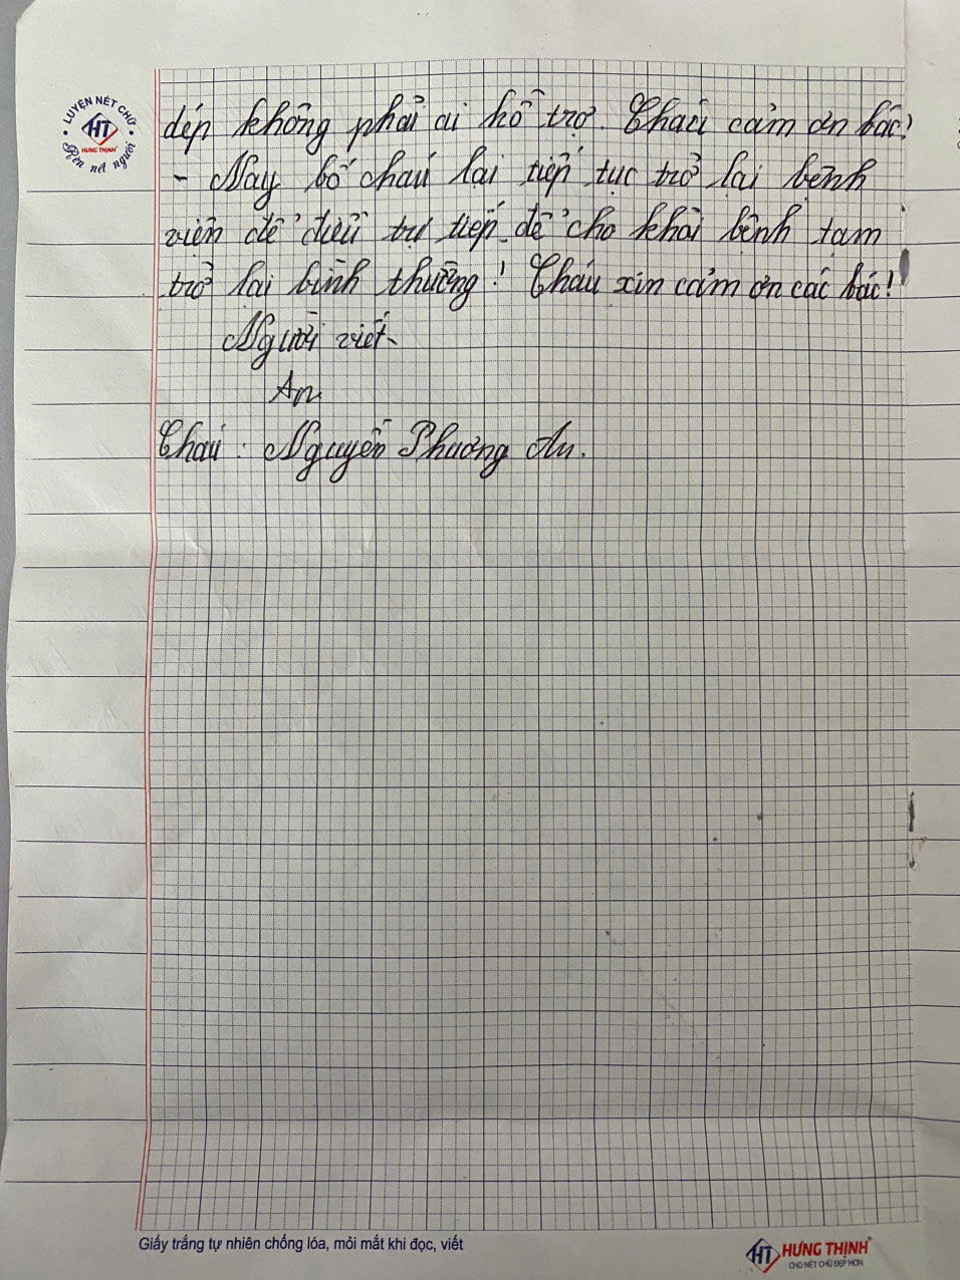 LUYỆN NÉT CHỮ
HT
HƯNG THỊNH
Rèn nết người
dép không phải ai hỗ trợ. Cháu cảm ơn bác!
- Nay bố cháu lại tiếp tục trở lại bệnh
viện để điều trị tiếp để cho khỏi bệnh tạm
trở lại bình thường! Cháu xin cảm ơn các bác!
Người viết
An
Cháu: Nguyễn Phương An.
Giấy trắng tự nhiên chống lóa, mỏi mắt khi đọc, viết
HT HƯNG THỊNH
CHO NÉT CHỮ ĐẸP HƠN